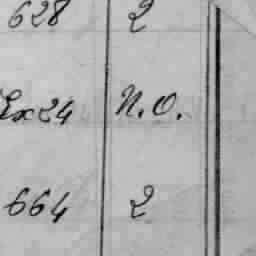 628 2
Ex24 N.O.
664 2